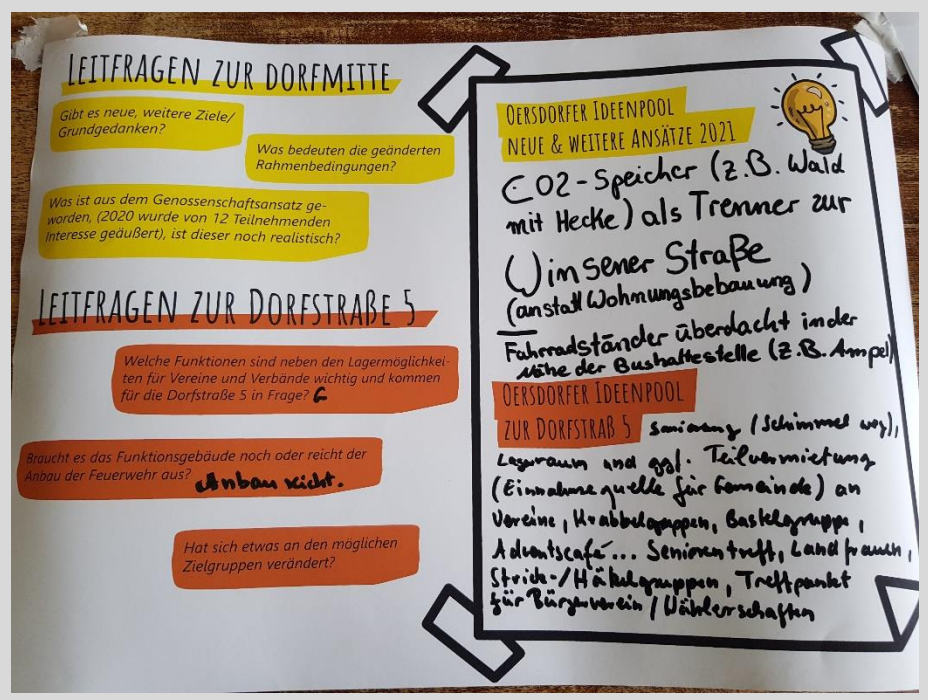 LEITFRAGEN ZUR DORFMITTE
Gibt es neue, weitere Ziele/
Grundgedanken?
Was bedeuten die geänderten
Rahmenbedingungen?
Was ist aus dem Genossenschaftsansatz ge-
worden, (2020 wurde von 12 Teilnehmenden
Interesse geäußert), ist dieser noch realistisch?
LEITFRAGEN ZUR DORFSTRAßE 5
Welche Funktionen sind neben den Lagermöglichkei-
ten für Vereine und Verbände wichtig und kommen
für die Dorfstraße 5 in Frage?
Braucht es das Funktionsgebäude noch oder reicht der
Anbau der Feuerwehr aus? Anbau reicht.
Hat sich etwas an den möglichen
Zielgruppen verändert?
OERSDORFER IDEENPOOL
NEUE & WEITERE ANSÄTZE 2021
CO2-Speicher (z.B. Wald
mit Hecke) als Trenner zur
Winsener Straße
(anstatt Wohnungsbebauung)
Fahrradständer überdacht in der
Nähe der Bushaltestelle (z.B. Ampel)
OERSDORFER IDEENPOOL
ZUR DORFSTRAß 5 sanierung (Schimmel weg),
Lagerraum und ggf. Teilvermietung
(Einnahmequelle für Gemeinde) an
Vereine, Krabbelgruppen, Bastelgruppe,
Adventscafé... Seniorentreff, Landfrauen,
Strick-/Häkelgruppen, Treffpunkt
für Bürgerverein / Wählerschaften